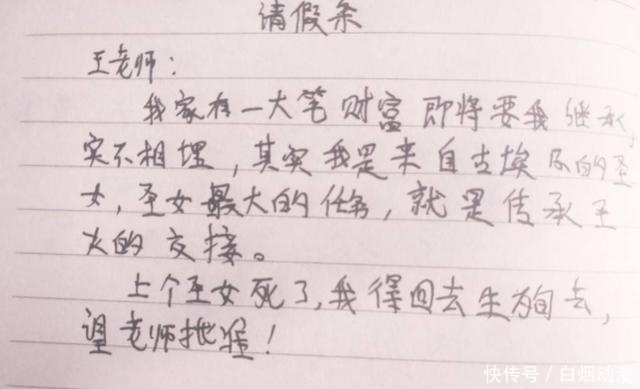 请假条
王老师:
我家有一大笔财富即将要我继承,
实不相埋,其实我是来自古埃及的圣
女,圣女最大的任务,就是传承圣
火的交接。
上个圣女死了,我得回去
望老师批准!
快传号/白烟动漫